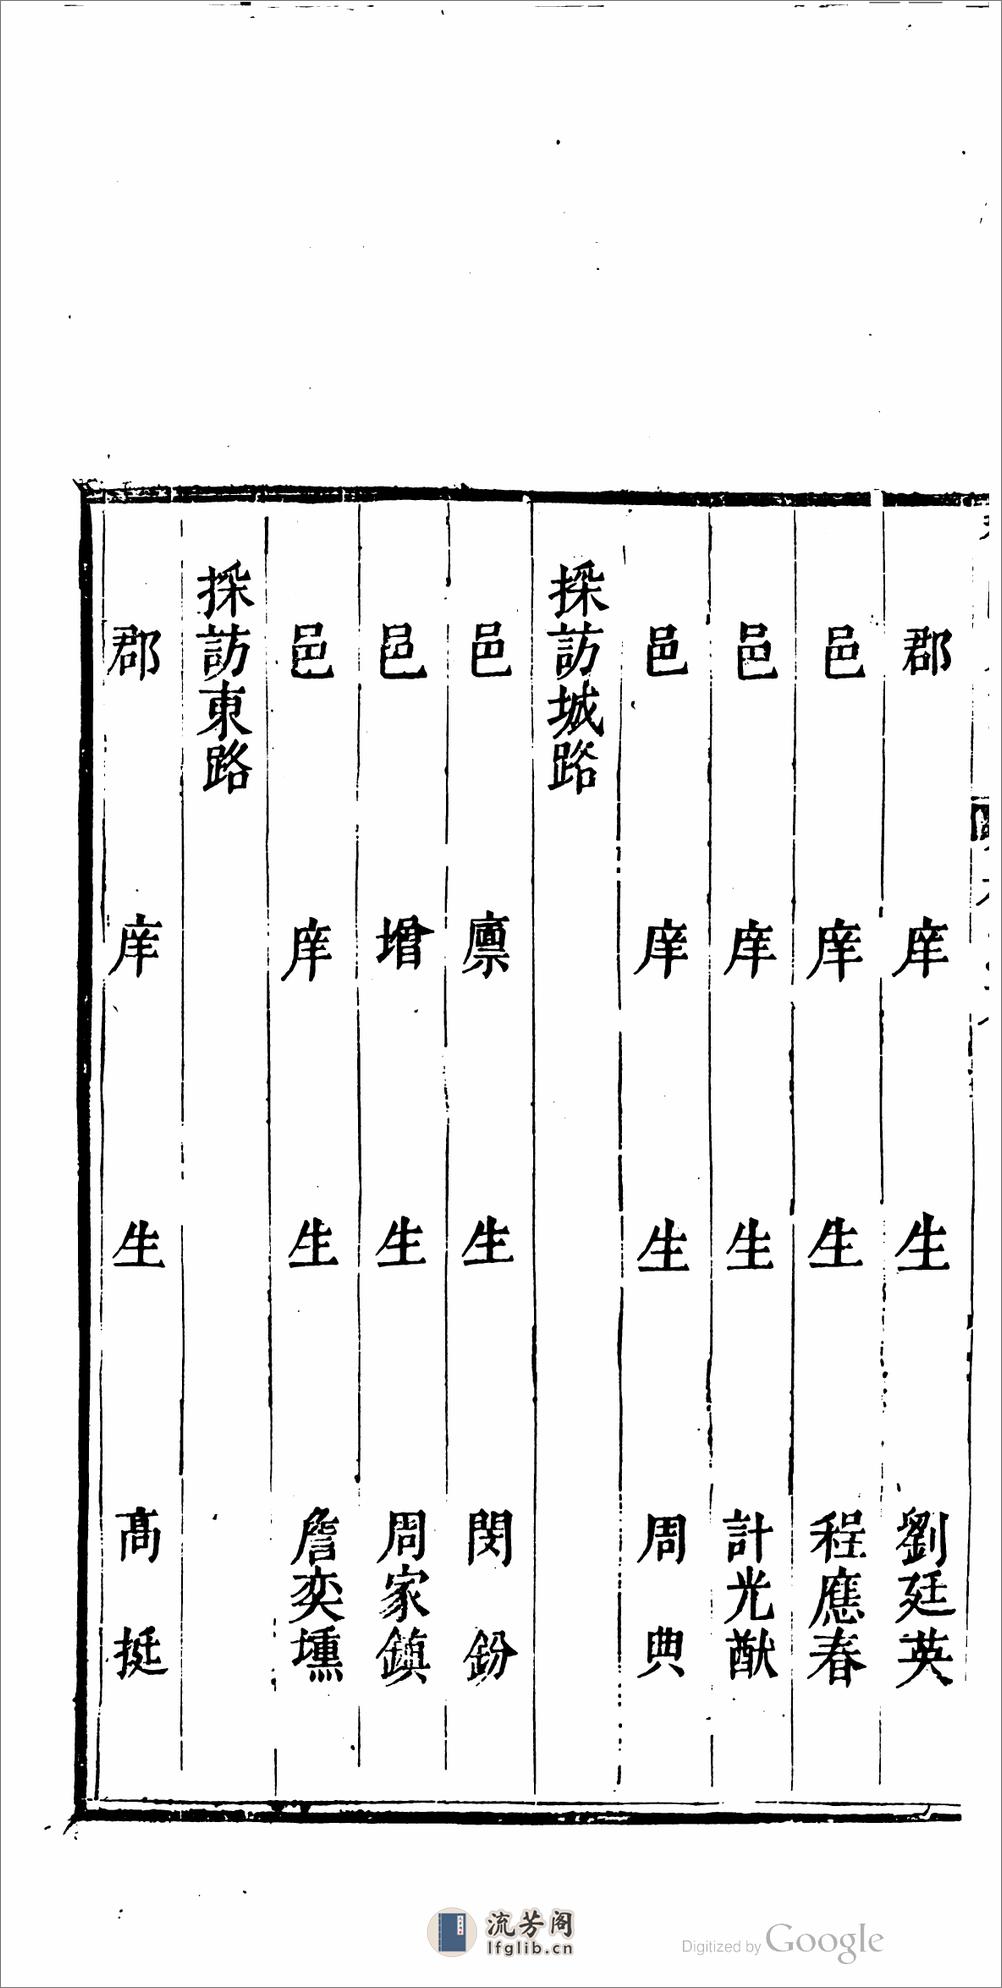 郡庠生劉廷英
邑庠生程應春
邑庠生計光猷
邑庠生周典
採訪城路
邑廪生閔鈖
邑增生周家鎮
邑庠生詹奕壎
採訪東路
郡庠生高挺
流芳阁
lfglib.cn
Digitized by Google